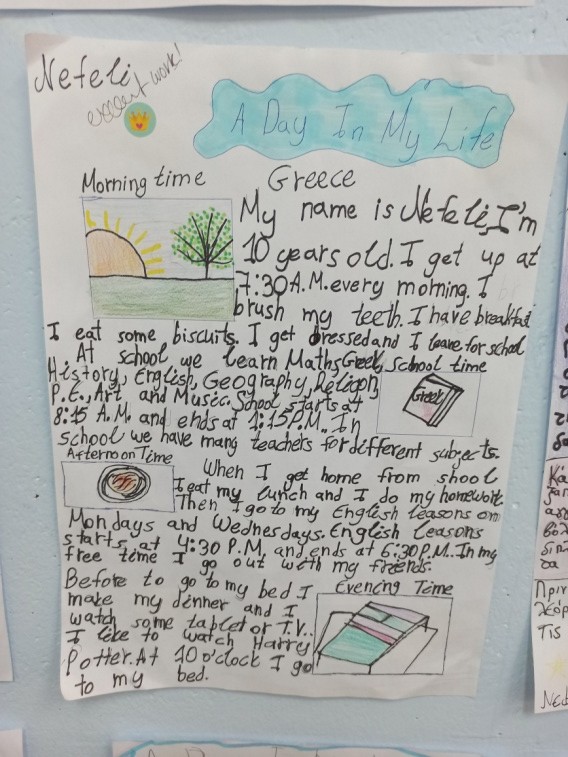 Nefeli
A Day In My Life
Morning time
Greece
My name is Nefeli, I'm
10 years old. I get up at
7:30 A.M. every morning. I
brush my teeth. I have breakfast
I eat some biscuits. I get dressed and I leave for school
At school we learn Maths, Greek,
School time
History, English, Geography, Religion,
P.E., Art and Music. School starts at
Greek
8:15 A.M. and ends at 1:15 P.M.. In
school we have many teachers for different subjects.
Afternoon Time
When I get home from shool
I eat my lunch and I do my homework
Then I go to my English leasons on
Mondays and Wednesdays. English leasons
starts at 4:30 P.M. and ends at 6:30 P.M.. In my
free time I go out with my friends.
Before to go to my bed I
Evening Time
make my dinner and I
watch some tablet or T.V..
I like to watch Harry
Potter. At 10 o'clock I go
to my bed.
Πριν
Τις